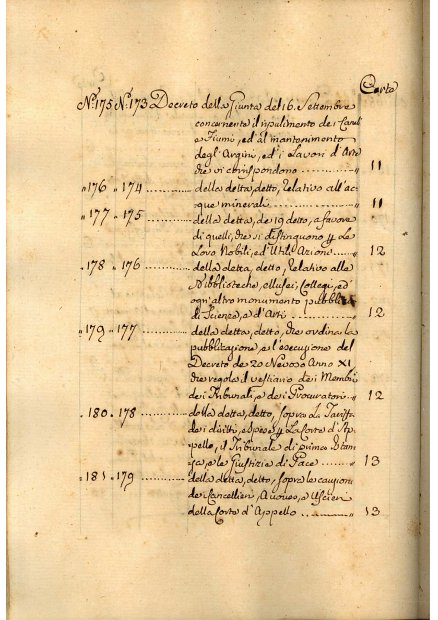 Carte
Nº. 175 Nº. 173 Decreto della Giunta del 16. Settembre
concernente il ripulimento de i Canali
e Fiumi, ed al mantenimento
degl'Argini, ed i Lavori d'Arte
che vi corrispondono ........ " 11
" 176 " 174 ............ della detta, detto, relativo all'ac
que minerali ............ " 11
" 177 " 175 ............ della detta, de 19 detto, a favore
di quelli, che si distinguono p le
Loro Nobili, ed Utili Azione ..... " 12
" 178 " 176 ............ della detta, detto, Relativo alle
Bibblioteche, e Musei, Collegi, ed
ogn'altro monumento pubblico
di Scienze, e d'Arti ............ " 12
" 179 " 177 ............ della detta, detto, che ordina la
pubblicazione, e l'esecuzione del
Decreto de 20 Nevoso Anno XI.
che regola il vestiario dei Membri
dei Tribunali, e dei Procuratori .. " 12
" 180 " 178 ............ della detta, detto, sopra la Tariffa
dei diritti, e spese p la Corte d'Ap
pello, il Tribunale di prima Istan
za, e le Giustizie di Pace ........ " 13
" 181 " 179 ............ della detta, detto, sopra le cauzioni
de Cancellieri, e Uscieri
della Corte d'Appello ............ " 13